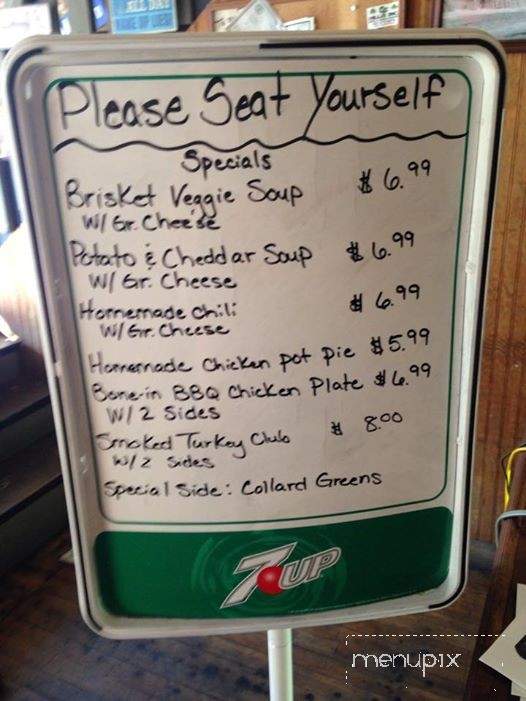 ALL DAY
Please Seat Yourself
Specials
Brisket Veggie Soup $ 6.99
W/ Gr. Cheese
Potato & Cheddar Soup $ 6.99
W/ Gr. Cheese
Homemade Chili $ 6.99
W/ Gr. Cheese
Homemade Chicken Pot Pie $5.99
Bone-in BBQ Chicken Plate $6.99
W/ 2 Sides
Smoked Turkey Club $ 8.00
W/ 2 Sides
Special Side: Collard Greens
7UP
menupix